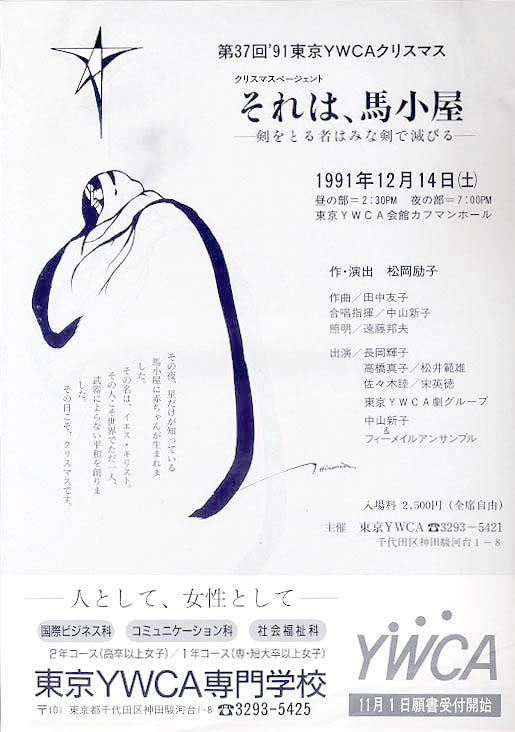 第37回'91東京YWCAクリスマス
クリスマスページェント
それは、馬小屋
―剣をとる者はみな剣で滅びる―
1991年12月14日(土)
昼の部=2:30PM 夜の部=7:00PM
東京YWCA会館カフマンホール
作・演出 松岡励子
作曲/田中友子
合唱指揮/中山新子
照明/遠藤邦夫
出演/長岡輝子
高橋真子/松井範雄
佐々木睦/宋英徳
東京YWCA劇グループ
中山新子
&
フィーメイルアンサンブル
その夜、星だけが知っている
馬小屋に赤ちゃんが生まれま
した。
その名は、イエス・キリスト。
その人こそ世界でただ一人、
武器によらない平和を創りま
した。
その日こそ、クリスマスです。
入場料 2,500円(全席自由)
主催 東京YWCA ☎3293-5421
千代田区神田駿河台1-8
―人として、女性として―
国際ビジネス科 コミュニケーション科 社会福祉科
2年コース(高卒以上女子)/1年コース(専・短大卒以上女子)
東京YWCA専門学校
〒101 東京都千代田区神田駿河台1-8 ☎3293-5425
YWCA
11月1日願書受付開始